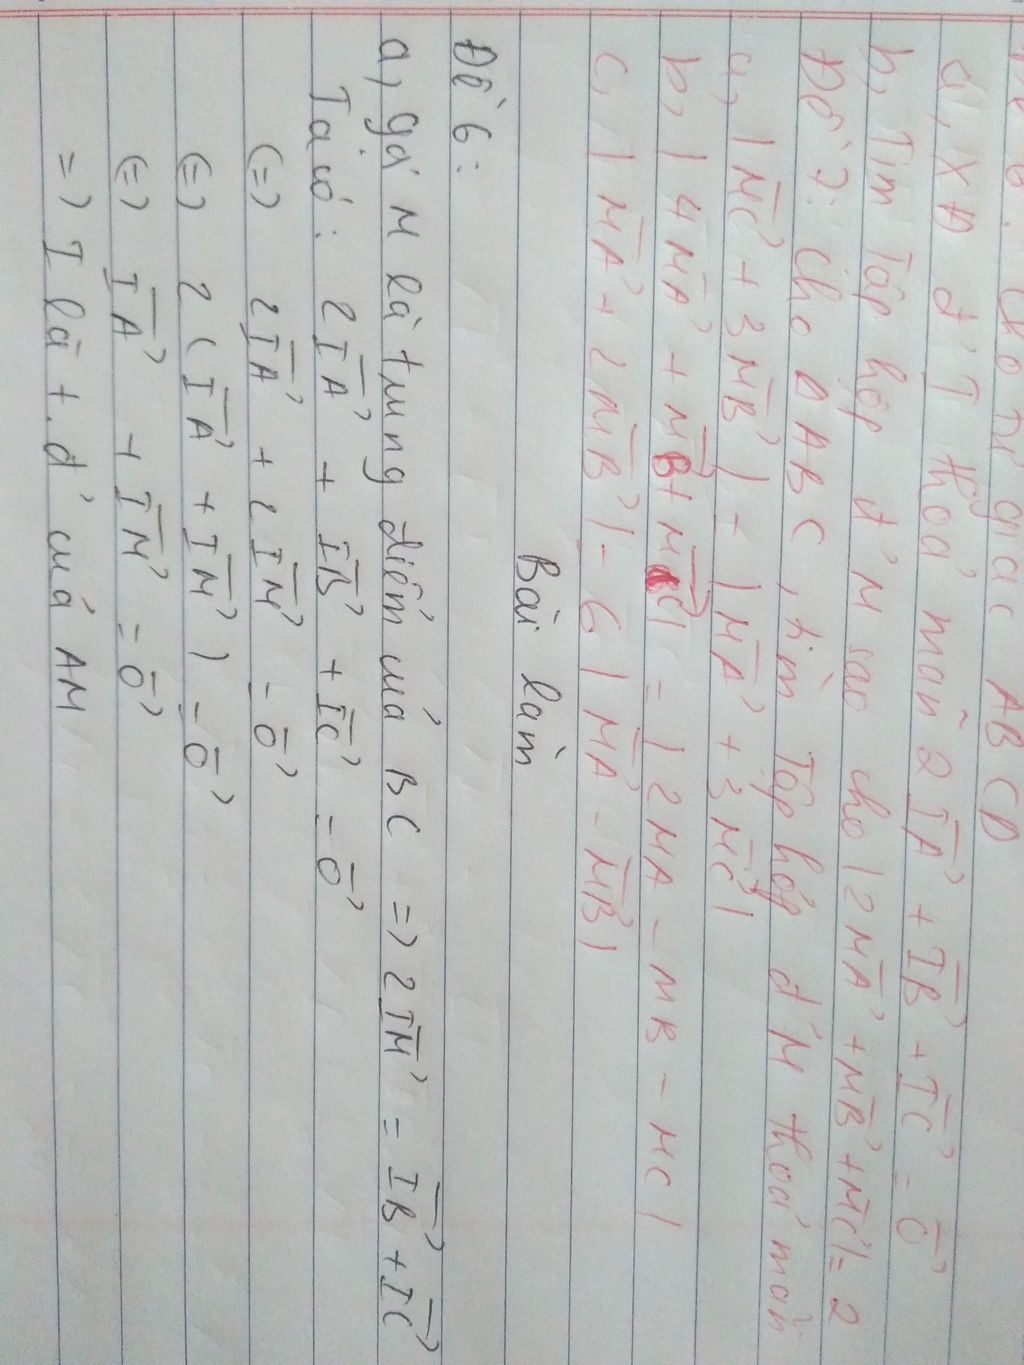 Cho tứ giác ABCD
a, XĐ đ' I thoả mãn 2IA→ + IB→ + IC→ = O→
b, Tìm tập hợp đ' M sao cho |2MA→ + MB→ + MC→| = 2
Đề 7: Cho Δ ABC, tìm tập hợp đ' M thoả mãn
a, |MC→ + 3MB→| + |MA→ + 3MC→|
b, |4MA→ + MB→ + MC→| = |2MA - MB - MC|
c, |MA→ + 2MB→| - 6|MA→ - MB→|
Bài làm
Đề 6:
a, gọi M là trung điểm của BC => 2IM→ = IB→ + IC→
Ta có: 2IA→ + IB→ + IC→ = O→
(=) 2IA→ + 2IM→ = O→
(=) 2(IA→ + IM→) = O→
(=) IA→ + IM→ = O→
=> I là t.đ' của AM